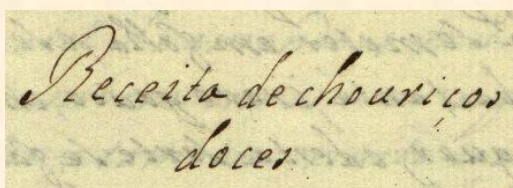 Receita de chouriços
doces